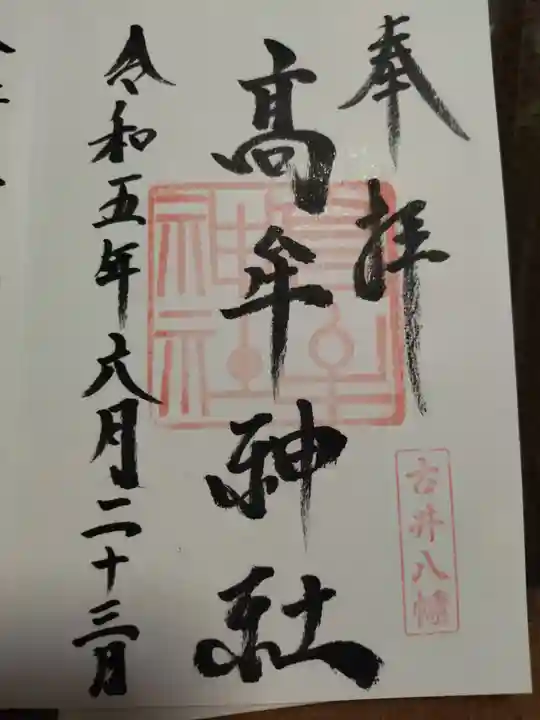 奉拝
古井八幡
高牟神社
令和五年六月二十三月